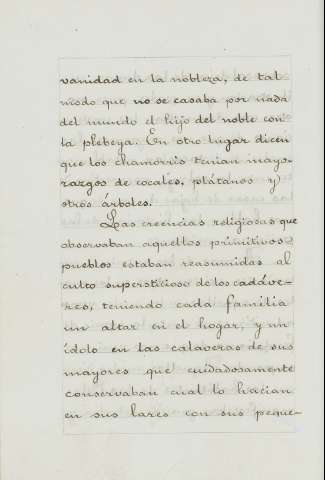 vanidad en la nobleza, de tal
modo que no se casaba por nada
del mundo el hijo del noble con
la plebeya. En otro lugar dicen
que los chamorris tenian mayo-
razgos de cocales, plátanos y
otros árboles.
Las creencias religiosas que
observaban aquellos primitivos
pueblos estaban reasumidas al
culto supersticioso de los cadáve-
res, teniendo cada familia
un altar en el hogar, y un
ídolo en las calaveras de sus
mayores que cuidadosamente
conservaban cual lo hacian
en sus lares con sus peque-